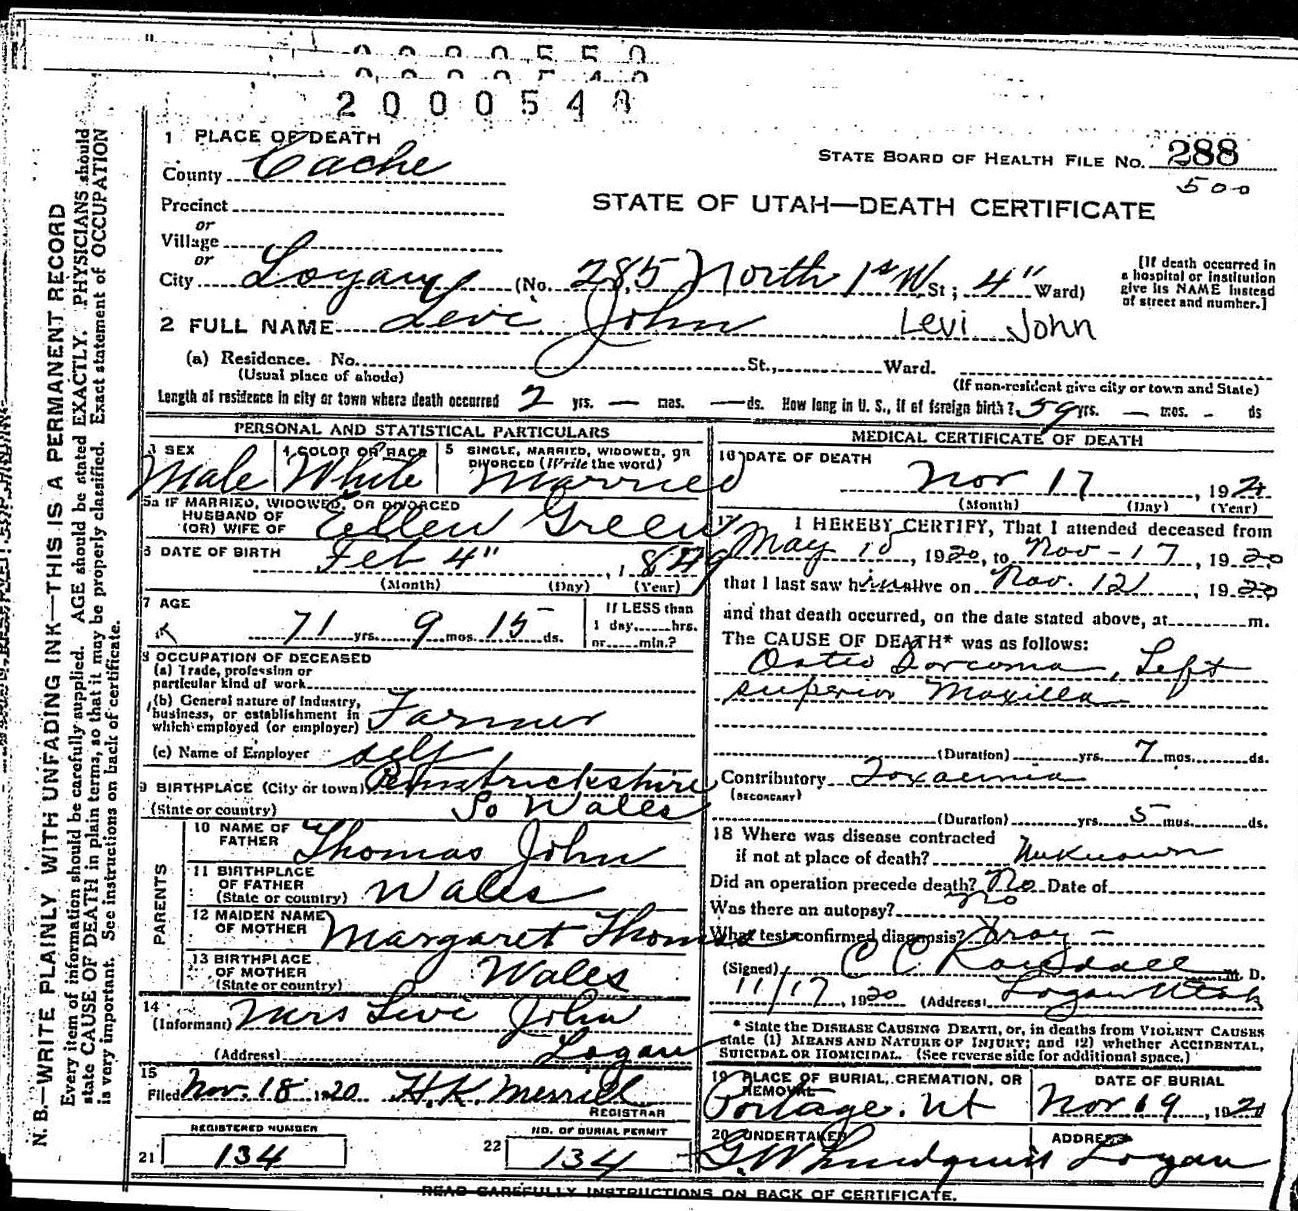 2000548
1 PLACE OF DEATH
County Cache
STATE BOARD OF HEALTH FILE No. 288
500
Precinct
STATE OF UTAH—DEATH CERTIFICATE
or
Village
or
City Logan (No. 285 North 1st W St; 4" Ward)
[If death occurred in
a hospital or institution
give its NAME instead
of street and number.]
2 FULL NAME Levi John Levi John
(a) Residence. No. St., Ward.
(Usual place of abode)
(If non-resident give city or town and State)
Length of residence in city or town where death occurred 2 yrs. — mos. — ds. How long in U. S., if of foreign birth? 59 yrs. — mos. - ds
PERSONAL AND STATISTICAL PARTICULARS
3 SEX
Male
4 COLOR OR RACE
White
5 SINGLE, MARRIED, WIDOWED, OR
DIVORCED (Write the word)
Married
5a IF MARRIED, WIDOWED, OR DIVORCED
HUSBAND OF
(OR) WIFE OF Ellen Green
6 DATE OF BIRTH
Feb 4" , 1849
(Month) (Day) (Year)
7 AGE
71 yrs. 9 mos. 15 ds.
If LESS than
1 day, hrs.
or min.?
8 OCCUPATION OF DECEASED
(a) Trade, profession or
particular kind of work
(b) General nature of Industry,
business, or establishment in
which employed (or employer) Farmer
(c) Name of Employer self
9 BIRTHPLACE (City or town) Pembrickshire
(State or country) So Wales
PARENTS
10 NAME OF
FATHER Thomas John
11 BIRTHPLACE
OF FATHER
(State or country) Wales
12 MAIDEN NAME
OF MOTHER Margaret Thomas
13 BIRTHPLACE
OF MOTHER
(State or country) Wales
14
(Informant) Mrs Levi John
(Address) Logan
15
Filed Nov. 18, 1920 H.K. Merrill
REGISTRAR
REGISTERED NUMBER
21 134
NO. OF BURIAL PERMIT
22 134
MEDICAL CERTIFICATE OF DEATH
16 DATE OF DEATH
Nov 17 , 1920
(Month) (Day) (Year)
17 I HEREBY CERTIFY, That I attended deceased from
May 10, 1920, to Nov - 17, 1920
that I last saw him alive on Nov. 12, 1920
and that death occurred, on the date stated above, at m.
The CAUSE OF DEATH* was as follows:
Osteo Sarcoma, Left
superior Maxilla
(Duration) yrs. 7 mos. ds.
Contributory Toxaemia
(SECONDARY)
(Duration) yrs. 5 mos. ds.
18 Where was disease contracted
if not at place of death? Unknown
Did an operation precede death? No Date of
Was there an autopsy? No
What test confirmed diagnosis? Xray -
(Signed) C C Randall M. D.
11/17, 1920 (Address) Logan Utah
* State the DISEASE CAUSING DEATH, or, in deaths from VIOLENT CAUSES
state (1) MEANS AND NATURE OF INJURY; and (2) whether ACCIDENTAL,
SUICIDAL OR HOMICIDAL. (See reverse side for additional space.)
19 PLACE OF BURIAL, CREMATION, OR
REMOVAL
Portage. Ut
DATE OF BURIAL
Nov 19, 1920
20 UNDERTAKER
G.W. Lindquist
ADDRESS
Logan
READ CAREFULLY INSTRUCTIONS ON BACK OF CERTIFICATE.
N. B.—WRITE PLAINLY WITH UNFADING INK—THIS IS A PERMANENT RECORD
Every item of information should be carefully supplied. AGE should be stated EXACTLY. PHYSICIANS should
state CAUSE OF DEATH in plain terms, so that it may be properly classified. Exact statement of OCCUPATION
is very important. See instructions on back of certificate.